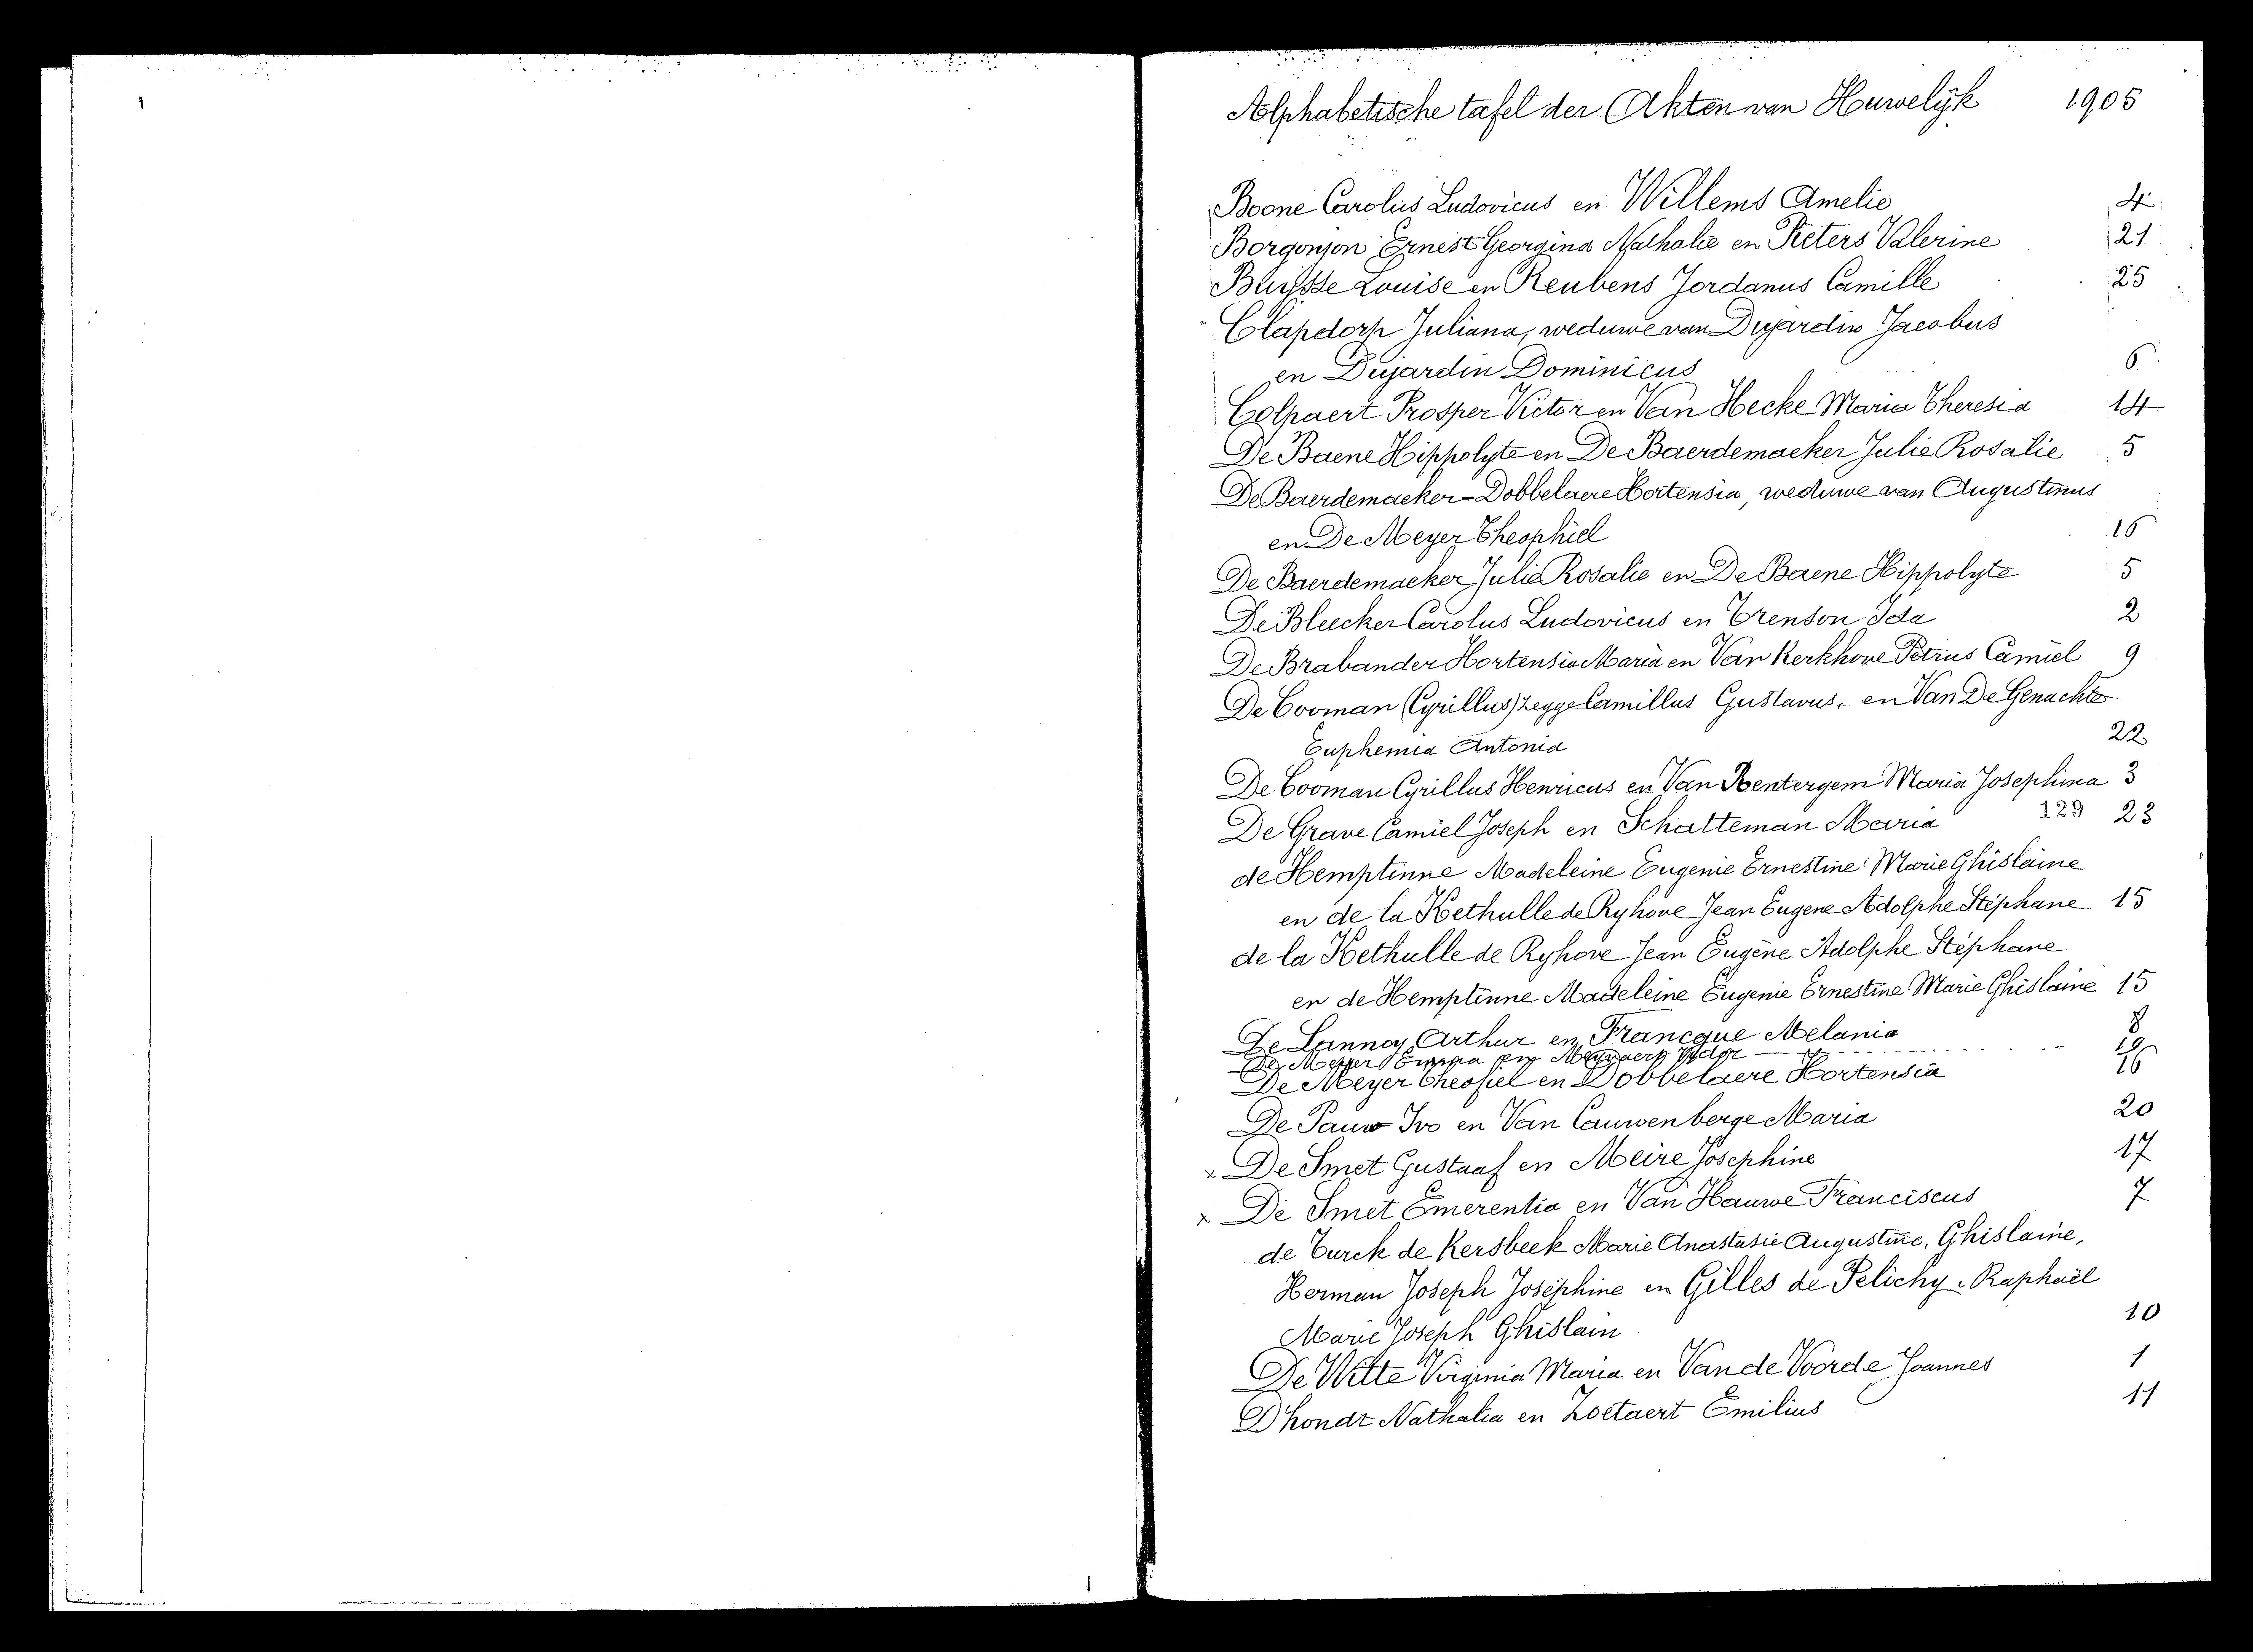 Alphabetische tafel der Akten van Huwelijk 1905
Boone Carolus Ludovicus en Willems Amelie 4
Borgonjon Ernest Georgina Nathalie en Pieters Valerine 21
Buysse Louise en Reubens Jordanus Camille 25
Clapdorp Juliana, weduwe van Dujardin Jacobus
en Dujardin Dominicus 6
Colpaert Prosper Victor en Van Hecke Maria Theresia 14
De Baene Hippolyte en De Baerdemaeker Julie Rosalie 5
De Baerdemaeker-Dobbelaere Hortensia, weduwe van Augustinus
en De Meyer Theophiel 16
De Baerdemaeker Julie Rosalie en De Baene Hippolyte 5
De Bleecker Carolus Ludovicus en Trenson Ida 2
De Brabander Hortensia Maria en Van Kerkhove Petrus Camiel 9
De Cooman (Cyrillus) zegge Camillus Gustavus, en Van De Genachte
Euphemia Antonia 22
De Cooman Cyrillus Henricus en Van Rentergem Maria Josephina 3
De Grave Camiel Joseph en Schatteman Maria 129 23
de Hemptinne Madeleine Eugenie Ernestine Marie Ghislaine
en de la Kethulle de Ryhove Jean Eugene Adolphe Stéphane 15
de la Kethulle de Ryhove Jean Eugène Adolphe Stéphane
en de Hemptinne Madeleine Eugenie Ernestine Marie Ghislaine 15
De Lannoy Arthur en Francque Melania 8
De Meyer Emma en 19
De Meyer Theofiel en Dobbelaere Hortensia 16
De Pauw Ivo en Van Cauwenberge Maria 20
x De Smet Gustaaf en Meire Josephine 17
x De Smet Emerentia en Van Hauwe Franciscus 7
de Turck de Kersbeek Marie Anastasie Augustine, Ghislaine,
Herman Joseph Joséphine en Gilles de Pelichy Raphaël
Marie Joseph Ghislain 10
De Witte Virginia Maria en Van de Voorde Joannes 1
Dhondt Nathalia en Zoetaert Emilius 11